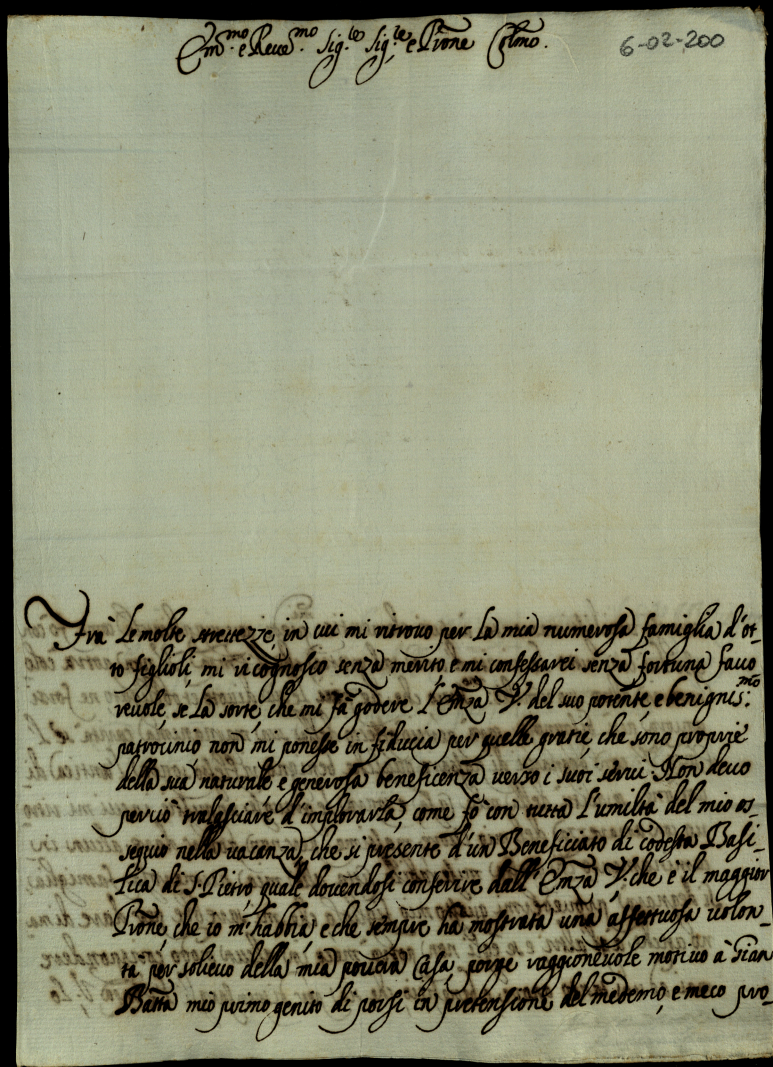 Em.mo e Reue.mo Sig.re Sig.re e Prone Colmo.
6-02-200
Frà le molte strettezze, in cui mi ritrouo per la mia numerosa famiglia d'ot-
to figlioli, mi ricognosco senza merito e mi confessarei senza fortuna fauo
reuole, se la sorte, che mi fà godere l'Emza V. del suo potente, e benignis.mo
patrocinio non mi ponesse in fiducia per quelle gratie, che sono proprie
della sua naturale e generosa beneficenza uerso i suoi serui. Non deuo
perciò tralasciare d'implorarla, come fò con tutta l'umiltà del mio os-
sequio nella uacanza, che si presente d'un Beneficiato di codesta Basi-
lica di S. Pietro, quale douendosi conferire dall'Emza V. che è il maggior
Prone che io m'habbia, e che sempre hà mostrata una affettuosa uolon-
tà per solieuo della mia pouera Casa, porge raggioneuole motiuo à Gian
Batta mio primo genito di porsi in pretensione del medemo, e meco pro-